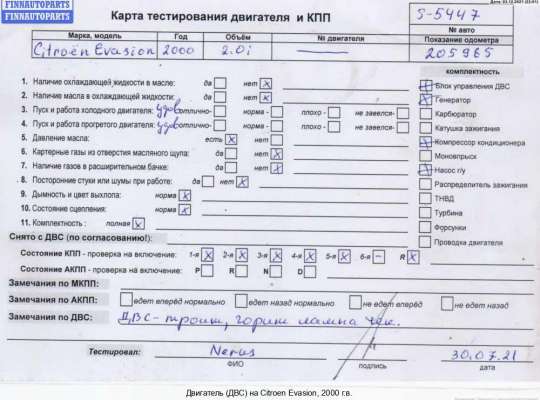 FINNAUTOPARTS
FINNAUTOPARTS
Карта тестирования двигателя и КПП
S-5447
№ авто
Марка, модель Год Объём № двигателя Показание одометра
Citroën Evasion 2000 2.0i 205965
комплектность
1. Наличие охлаждающей жидкости в масле: да нет x
Блок управления ДВС
2. Наличие масла в охлаждающей жидкости: да нет x
Генератор
3. Пуск и работа холодного двигателя: удов отлично- норма - плохо - не завелся-
Карбюратор
4. Пуск и работа прогретого двигателя: удов отлично- норма - плохо - не завелся-
Катушка зажигания
5. Давление масла: есть x нет
Компрессор кондиционера
6. Картерные газы из отверстия масляного щупа: да нет x
Моновпрыск
7. Наличие газов в расширительном бачке: да нет x
Насос г/у
8. Посторонние стуки или шумы при работе: да нет x
Распределитель зажигания
9. Дымность и цвет выхлопа: норма x
ТНВД
10. Состояние сцепления: норма x
Турбина
11. Комплектность : полная x
Форсунки
Снято с ДВС (по согласованию!):
Проводка двигателя
Состояние КПП - проверка на включение: 1-я x 2-я x 3-я x 4-я x 5-я x 6-я – R x
Состояние АКПП - проверка на включение: P R N D
Замечания по МКПП:
Замечания по АКПП: едет вперёд нормально едет назад нормально не едет вперёд не едет назад
Замечания по ДВС: ДВС - троит, горит лампа чек.
Тестировал: Nerus 30.07.21
ФИО подпись дата
Двигатель (ДВС) на Citroen Evasion, 2000 г.в.